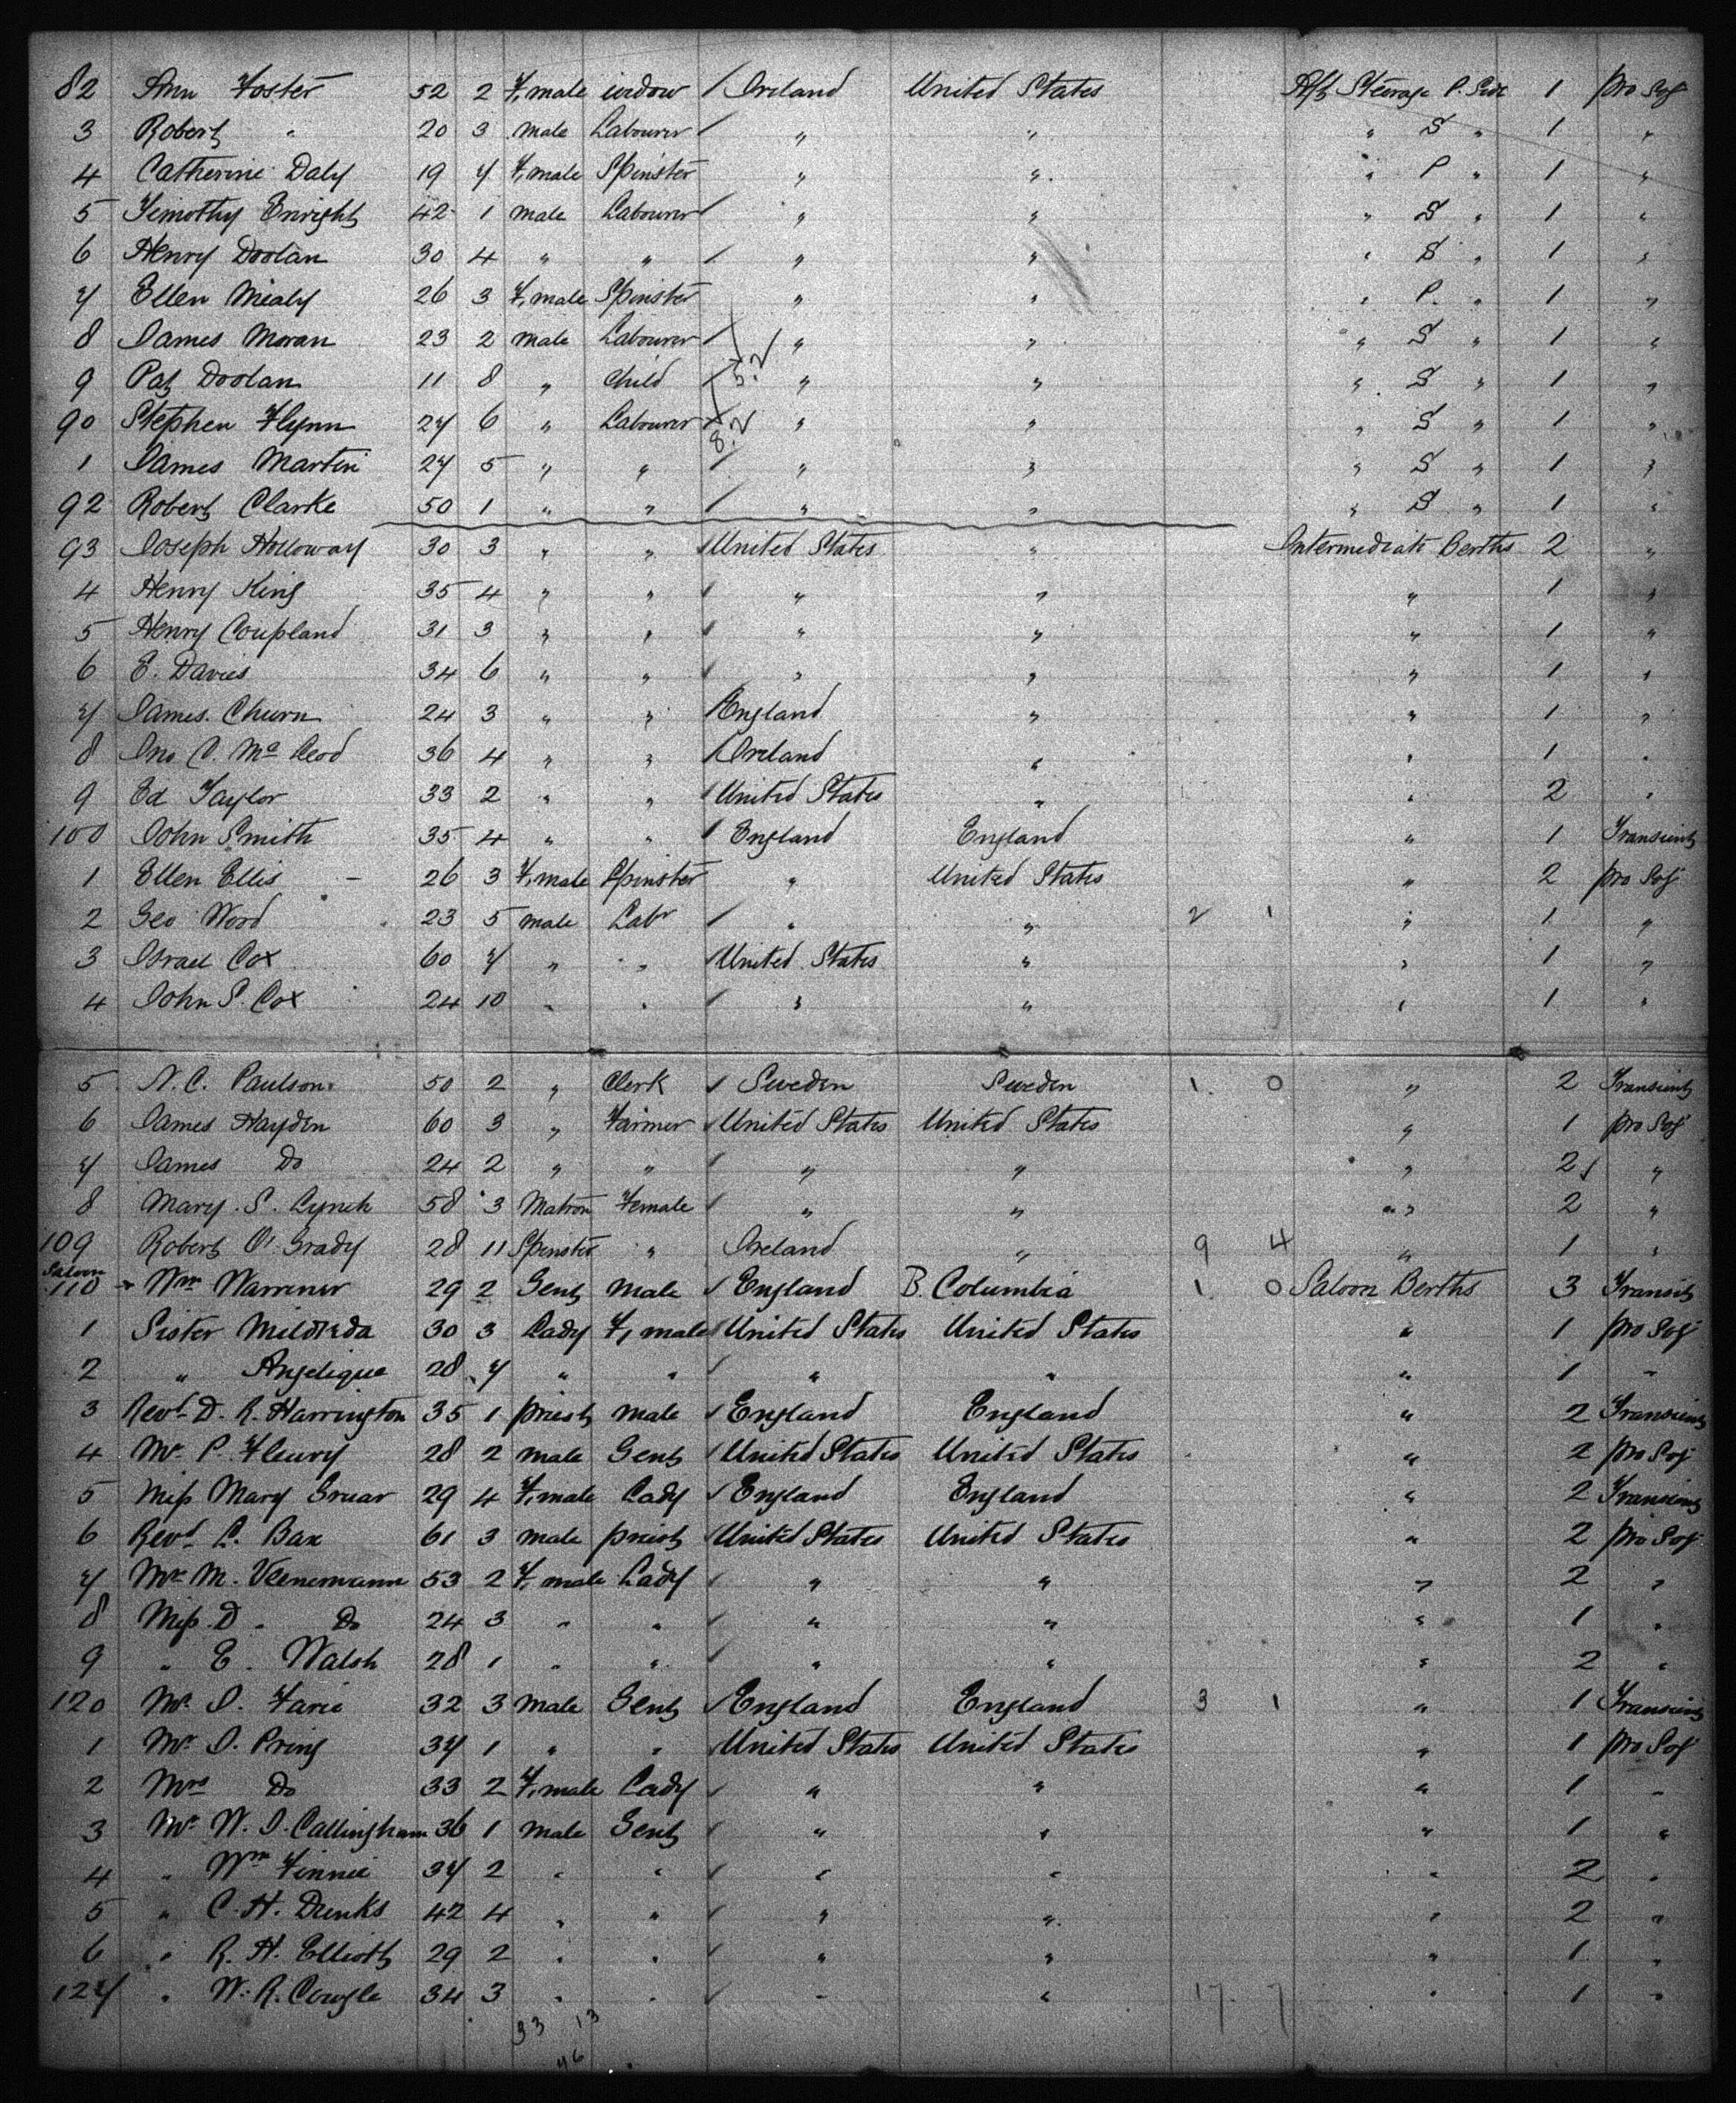 82 Ann Foster 52 2 F,male widow / Ireland United States Aft Steerage P. Side 1 Pro Soj
3 Robert " 20 3 male Labourer / " " " S " 1 "
4 Catherine Daly 19 7 F,male Spinster " " " P " 1 "
5 Temothy Enright 42 1 male Labourer / " " " S " 1 "
6 Henry Doolan 30 4 " " / " " " S " 1 "
7 Ellen Mealy 26 3 F,male Spinster " " " P. " 1 "
8 James Moran 23 2 male Labourer / " " " S " 1 "
9 Pat Doolan 11 8 " Child / " " " S " 1 "
90 Stephen Flynn 27 6 " Labourer " " " S " 1 "
1 James Martin 27 5 " " / " " " S " 1 "
92 Robert Clarke 50 1 " " / " " " S " 1 "
93 Joseph Holloway 30 3 " " / United States " Intermediate Berths 2 "
4 Henry King 35 4 " " / " " " 1 "
5 Henry Coupland 31 3 " " / " " " 1 "
6 E. Davies 34 6 " " / " " " 1 "
7 James Churn 24 3 " " / England " " 1 "
8 Jno C. Mc Leod 36 4 " " / Ireland " " 1 "
9 Ed Taylor 33 2 " " / United States " " 2 "
100 John Smith 35 4 " " / England England " 1 Transient
1 Ellen Ellis - 26 3 F,male Spinster " United States " 2 Pro Soj
2 Geo Wood 23 5 male Labr / " " 2 1 " 1 "
3 Israel Cox 60 7 " " / United States " " 1 "
4 John S. Cox 24 10 " " / " " " 1 "
5 N. C. Paulson 50 2 " Clerk / Sweden Sweden 1 0 " 2 Transient
6 James Hayden 60 3 " Farmer / United States United States " 1 Pro Soj
7 James Do 24 2 " " / " " " 2 "
8 Mary S. Lynch 58 3 Matron Female / " " " 2 "
109 Robert O'Grady 28 11 Spinster " Ireland " 9 4 " 1 "
Saloon
110 Wm Warriner 29 2 Gent male / England B. Columbia 1 0 Saloon Berths 3 Transit
1 Sister Mildreda 30 3 Lady F,male / United States United States " 1 Pro Soj
2 " Angelique 28 7 " " / " " " 1 "
3 Revd D. R. Harrington 35 1 priest male / England England " 2 Transient
4 Mr P. Fleury 28 2 male Gent / United States United States " 2 Pro Soj
5 Miss Mary Gruar 29 4 F,male Lady / England England " 2 Transient
6 Revd L. Bax 61 3 male priest / United States United States " 2 Pro Soj
7 Mrs M. Veenemann 53 2 F,male Lady / " " " 2 "
8 Miss D. Do 24 3 " " / " " " 1 "
9 " E. Walsh 28 1 " " / " " " 2 "
120 Mr J. Farie 32 3 male Gent / England England 3 1 " 1 Transient
1 Mr J. Pring 37 1 " " / United States United States " 1 Pro Soj
2 Mrs Do 33 2 F,male Lady / " " " 1 "
3 Mr W. J. Callingham 36 1 male Gent / " " " 1 "
4 " Wm Finnie 37 2 " " / " " " 2 "
5 " C. H. Dunks 42 4 " " / " " " 2 "
6 " R. H. Elliott 29 2 " " / " " " 1 "
127 " W. R. Cowgle 34 3 " " / " " 17 7 " 1 "
33 13
46